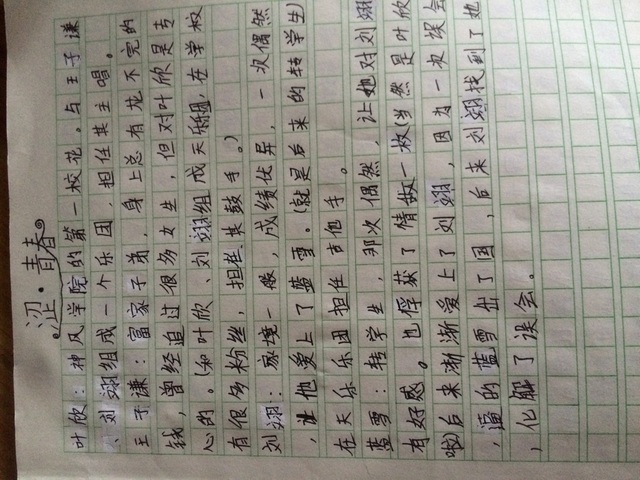 涩·青春
叶欣：神风学院的第一校花。与王子谦
、刘翊组成一个乐团，担任其主唱。
王子谦：富家子弟，身上总有花不完的
钱，曾经追过很多女生，但对叶欣是专
心的。（和叶欣、刘翊组成天乐组，在学校
有很多粉丝，担任其鼓手。）
刘翊：家境一般，成绩优异，一次偶然
，让他爱上了蓝雪。（就是后来的转学生）
在天乐乐团担任吉他手。
蓝雪：转学生，那次偶然，让她对刘翊
有好感。也俘获了情敌一枚（当然是叶欣
啦）后来渐渐爱上了刘翊，因为一次误会
，逼的蓝雪出了国，后来刘翊找到了她
，化解了误会。